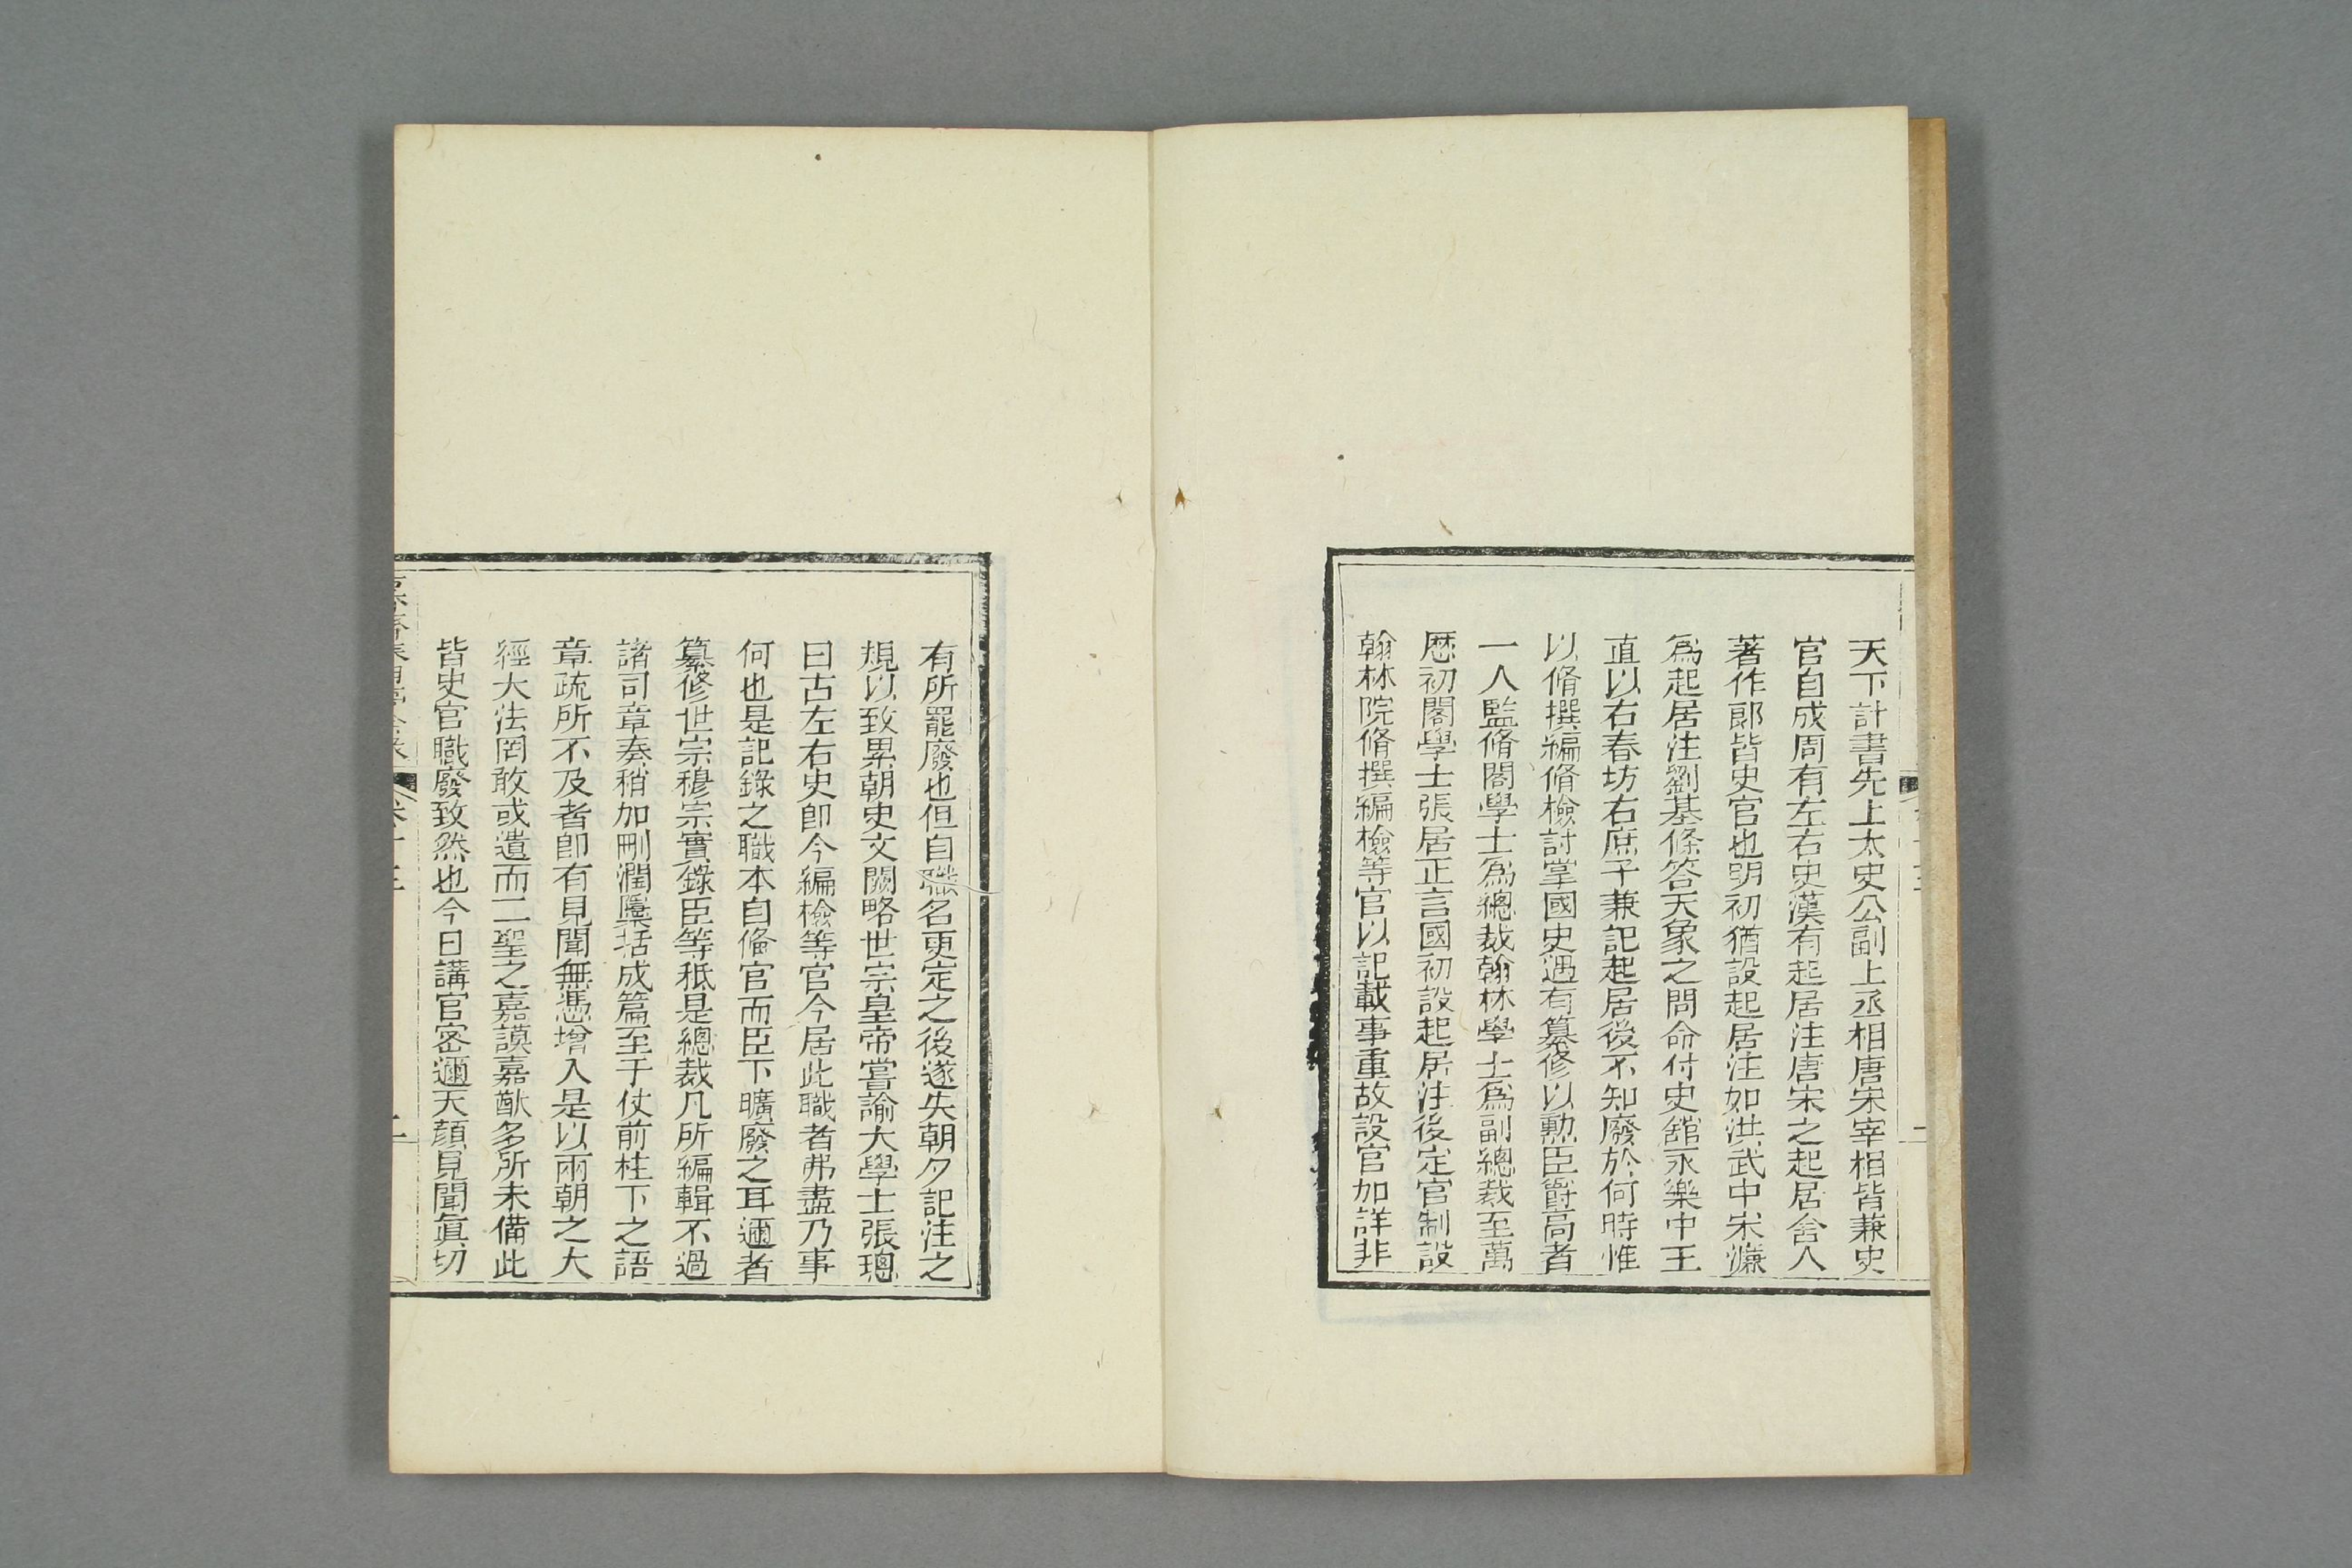 天下計書先上太史公副上丞相唐宋宰相皆兼史
官自成周有左右史漢有起居注唐宋之起居舍人
著作郎皆史官也明初猶設起居注如洪武中宋濂
爲起居注劉基條答天象之問命付史舘永樂中王
直以右春坊右庶子兼記起居後不知廢於何時惟
以脩撰編脩檢討掌國史遇有纂修以勲臣爵高者
一人監脩閣學士爲總裁翰林學士爲副總裁至萬
厯初閣學士張居正言國初設起居注後定官制設
翰林院脩撰編檢等官以記載事重故設官加詳非
有所罷廢也但自職名更定之後遂失朝夕記注之
規以致累朝史文闕略世宗皇帝嘗諭大學士張璁
曰古左右史卽今編檢等官今居此職者弗盡乃事
何也是記錄之職本自僃官而臣下曠廢之耳邇者
纂修世宗穆宗實錄臣等秪是總裁凡所編輯不過
諸司章奏稍加刪潤櫽括成篇至于仗前柱下之語
章疏所不及者卽有見聞無憑增入是以兩朝之大
經大法罔敢或遺而二聖之嘉謨嘉猷多所未備此
皆史官職廢致然也今日講官密邇天顔見聞眞切